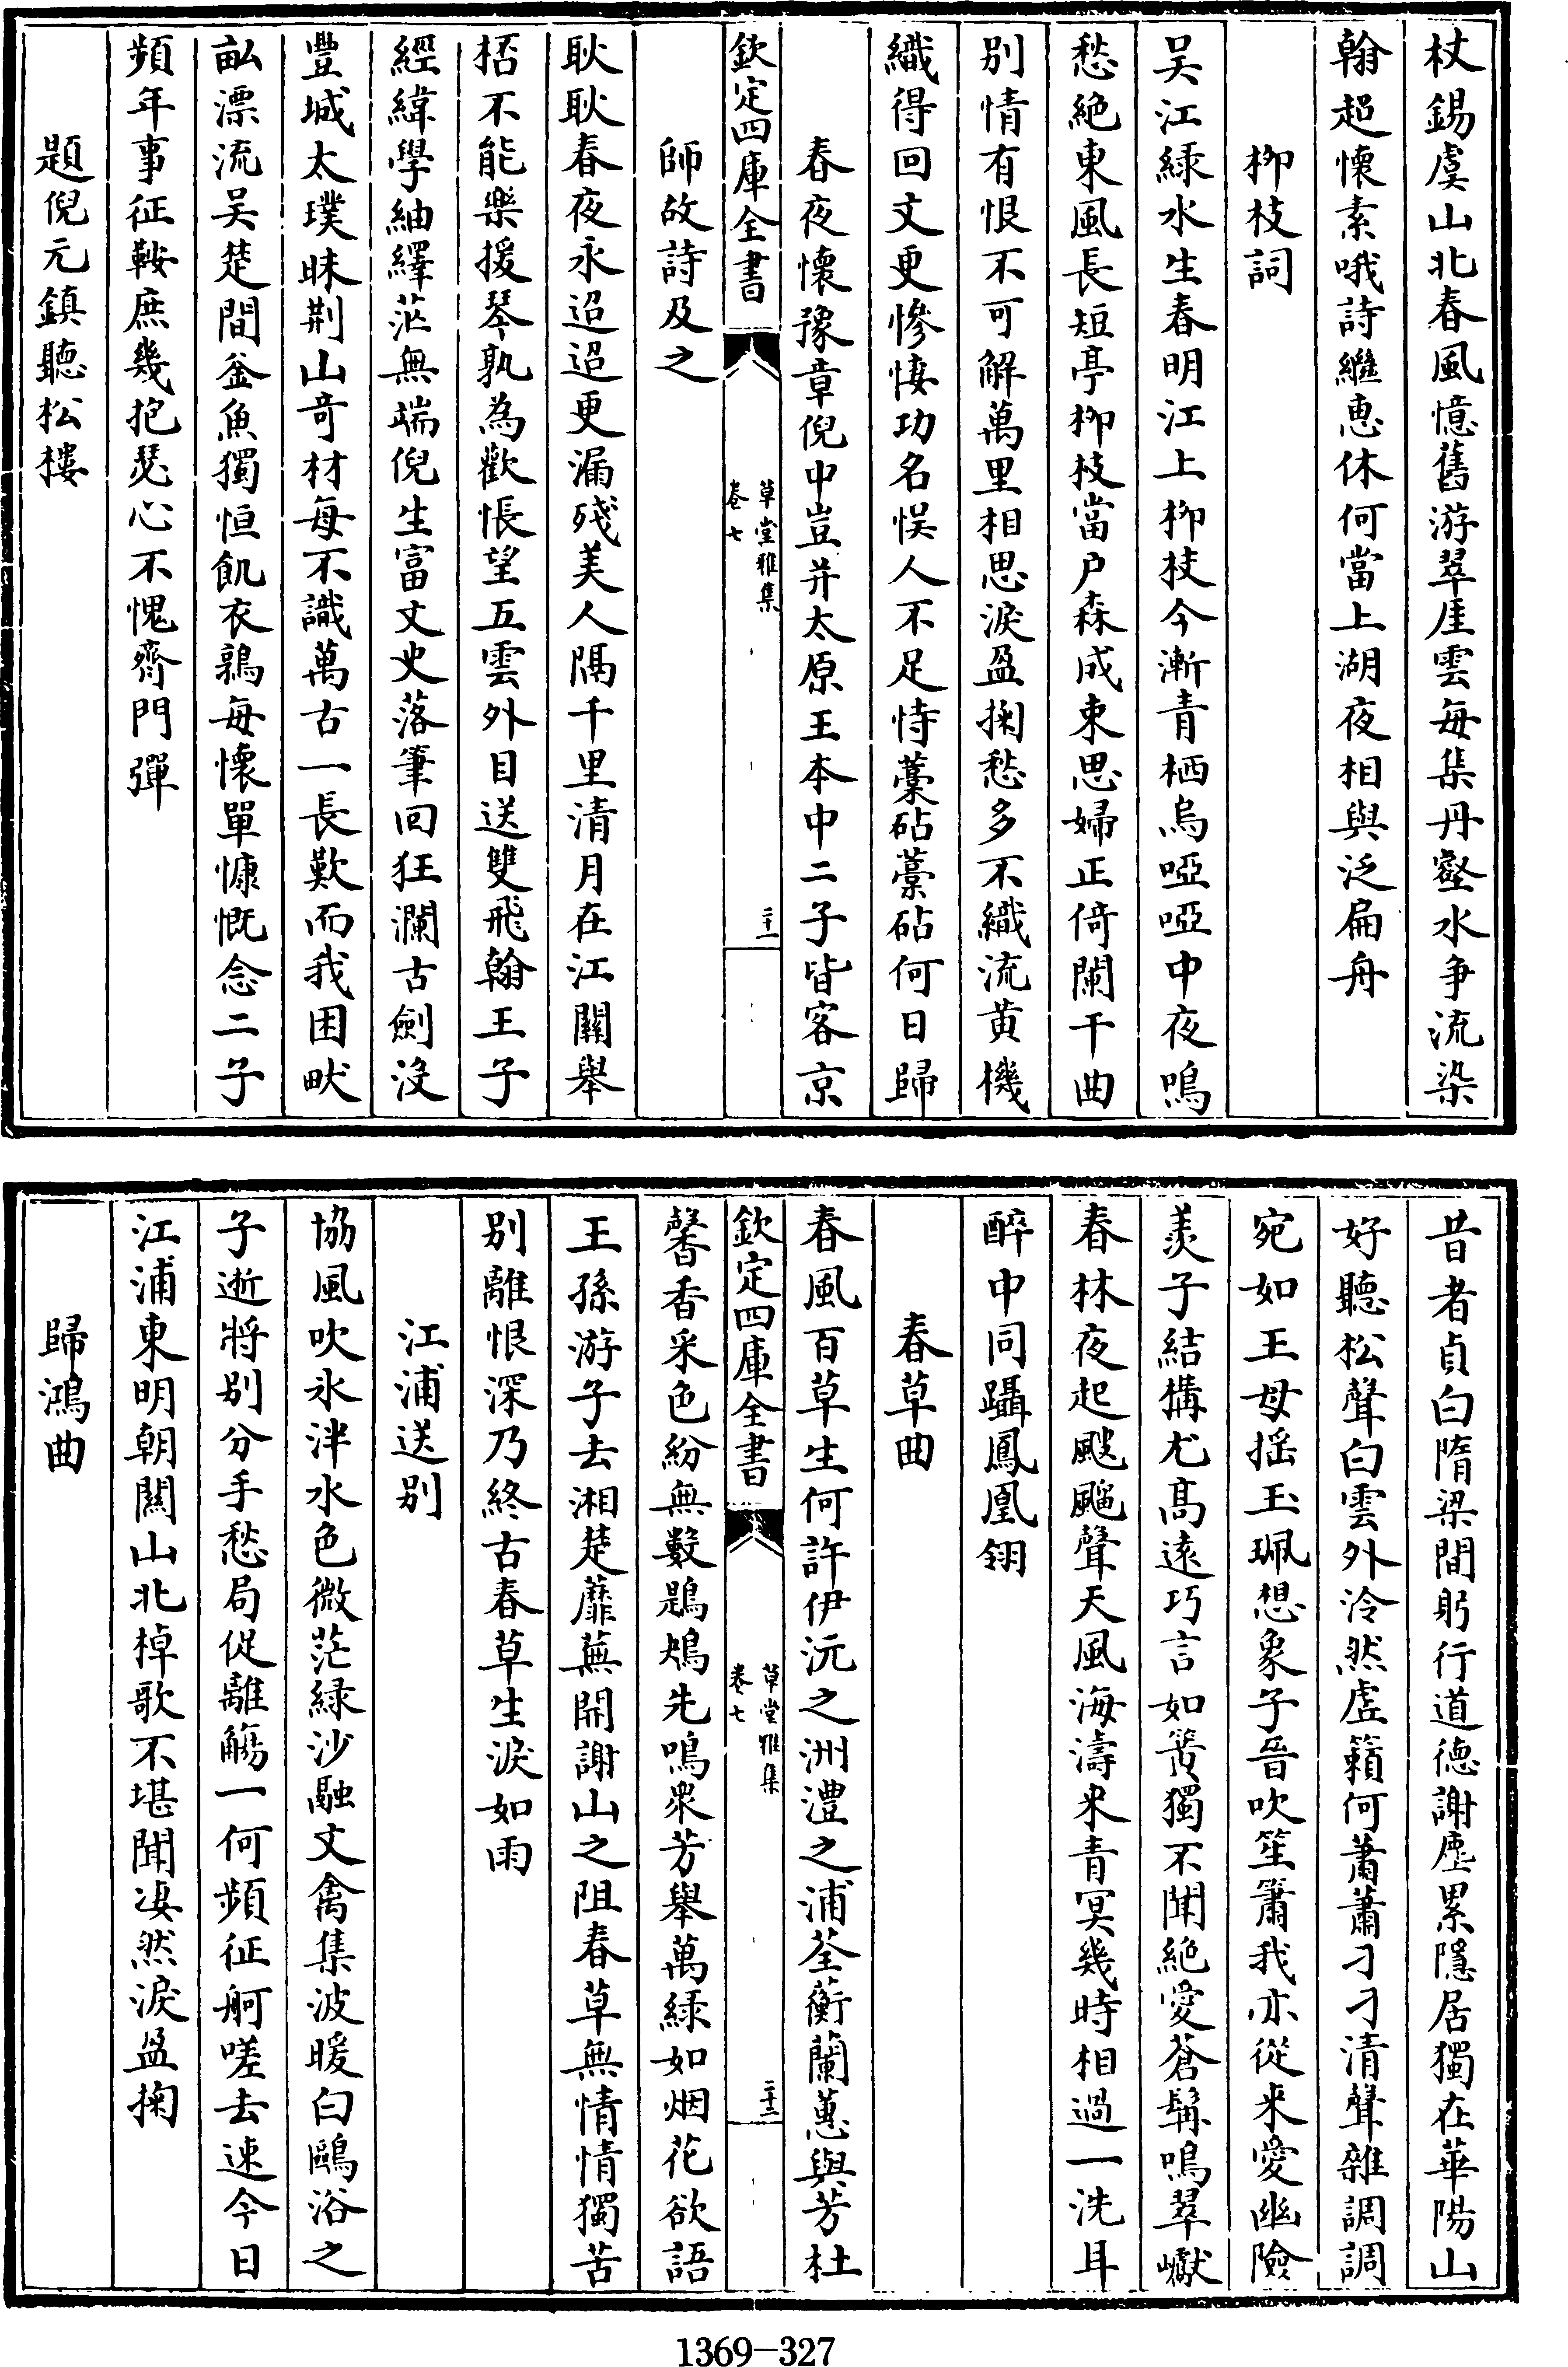 杖錫虞山北春風憶舊游翠厓雲每集丹壑水爭流染
翰超懷素哦詩繼惠休何當上湖夜相與泛扁舟
柳枝詞
吴江緑水生春明江上柳枝今漸青栖烏啞啞中夜鳴
愁絶東風長短亭柳枝當户森成束思婦正倚闌干曲
别情有恨不可解萬里相思淚盈掬愁多不織流黄機
織得回文更慘悽功名悮人不足恃藁砧藁砧何日歸
春夜懷豫章倪中豈并太原王本中二子皆客京
欽定四庫全書
草堂雅集
卷七
二十一
師故詩及之
耿耿春夜永迢迢更漏殘美人隔千里清月在江關舉
桮不能樂援琴孰為歡悵望五雲外目送雙飛翰王子
經緯學紬繹茫無端倪生富文史落筆回狂瀾古劍没
豐城太璞昧荆山竒材每不識萬古一長歎而我困畎
畝漂流吴楚間釡魚獨恒飢衣鶉每懷單慷慨念二子
頻年事征鞍庶幾抱瑟心不愧齊門彈
題倪元鎮聽松樓
昔者貞白隋梁間躬行道德謝塵累隱居獨在華陽山
好聽松聲白雲外泠然虚籟何蕭蕭刁刁清聲雜調調
宛如王母揺玉珮想象子晉吹笙簫我亦從來愛幽險
羡子結構尤髙逺巧言如簧獨不聞絶愛蒼髯鳴翠巘
春林夜起颼飀聲天風海濤来青冥幾時相過一洗耳
醉中同躡鳳凰翎
春草曲
春風百草生何許伊沅之洲澧之浦荃蘅蘭蕙與芳杜
欽定四庫全書
草堂雅集
卷七
二十二
馨香采色紛無數鶗鴂先鳴衆芳舉萬緑如烟花欲語
王孫游子去湘楚蘼蕪開謝山之阻春草無情情獨苦
别離恨深乃終古春草生淚如雨
江浦送别
協風吹氷泮水色微茫緑沙融文禽集波暖白鷗浴之
子逝將别分手愁局促離觴一何頻征舸嗟去速今日
江浦東明朝關山北棹歌不堪聞凄然淚盈掬
歸鴻曲
1369-327